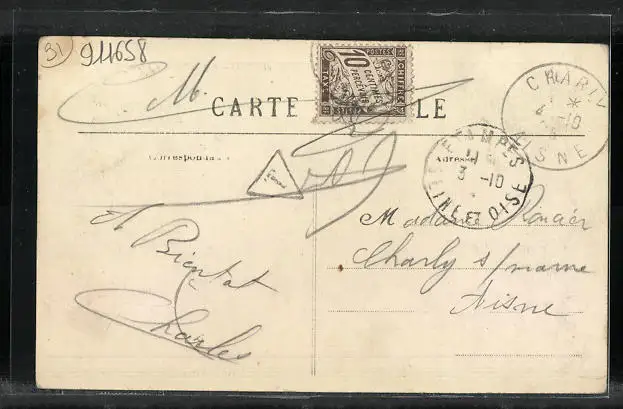 31
911658
CARTE LE
10
CENTIMES
A PERCEVOIR
POSTES
CHIFFRE
TAXE
CHARLY
4 -10
AISNE
ETAMPES
3 -10
SEINE ET OISE
Correspondance
Adresse
T
A Bientot
Charles
Madame
Charly s/marne
Aisne